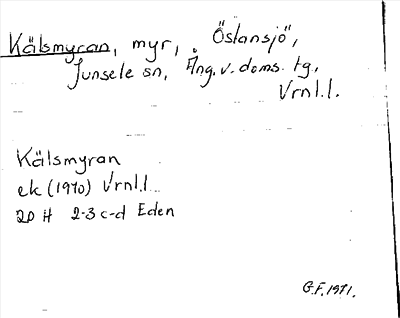 Kälsmyran, myr, Östansjö,
Junsele sn, Ång. v. doms. tg,
Vrnl.l.
Kälsmyran
ek (1970) Vrnl.l.
20 H 2-3 c-d Eden
G.F. 1971.